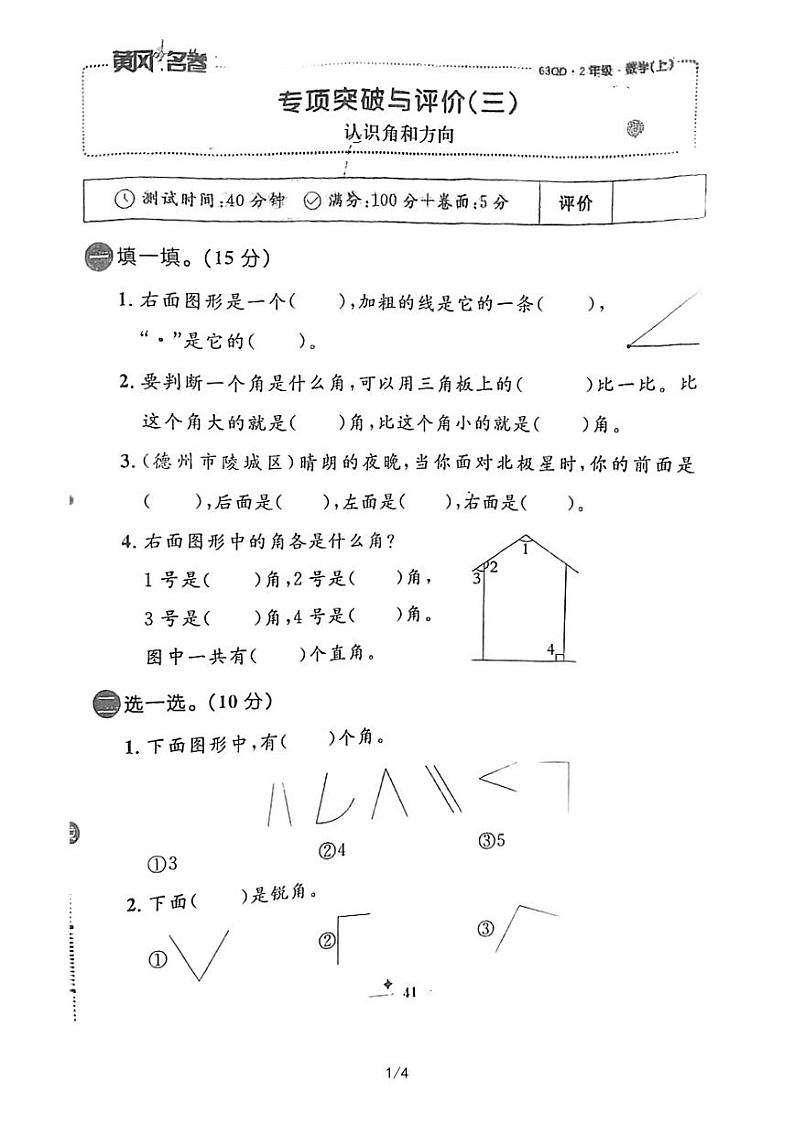 黄冈名卷
63QD·2年级·数学(上)
专项突破与评价(三)
认识角和方向
测试时间:40分钟 满分:100分+卷面:5分 评价
一 填一填。(15分)
1. 右面图形是一个( ),加粗的线是它的一条( ),
“·”是它的( )。
2. 要判断一个角是什么角,可以用三角板上的( )比一比。比
这个角大的就是( )角,比这个角小的就是( )角。
3. (德州市陵城区)晴朗的夜晚,当你面对北极星时,你的前面是
( ),后面是( ),左面是( ),右面是( )。
4. 右面图形中的角各是什么角?
1号是( )角,2号是( )角,
3号是( )角,4号是( )角。
图中一共有( )个直角。
1
2
3
4
二 选一选。(10分)
1. 下面图形中,有( )个角。
①3 ②4 ③5
2. 下面( )是锐角。
① ② ③
41
1/4